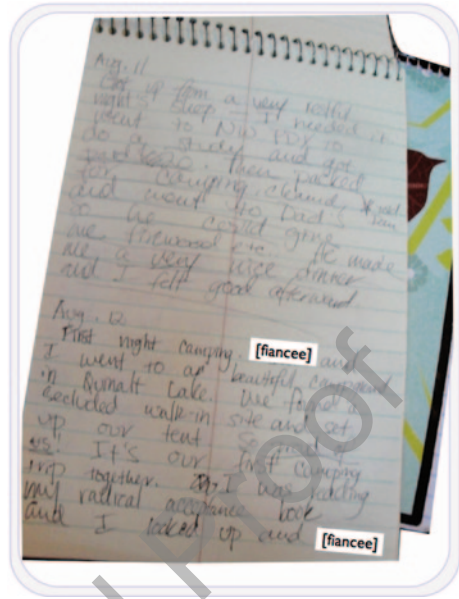 Aug. 11
Got up from a very restful
night's sleep. I needed it
went to NW PDX to
do a study and got
paid Then packed
for camping, cleaned,
and went to Dad's
so he could give
me firewood etc. He made
me a very nice dinner
and I felt good afterward.
Aug. 12
First night camping. [fiancee] and
I went to a beautiful campground
in Quinalt Lake. We found a
secluded walk-in site and set
up our tent. So proud of
us. It's our first camping
trip together. I was reading
my radical acceptance book
and I looked up and [fiancee]
Proof